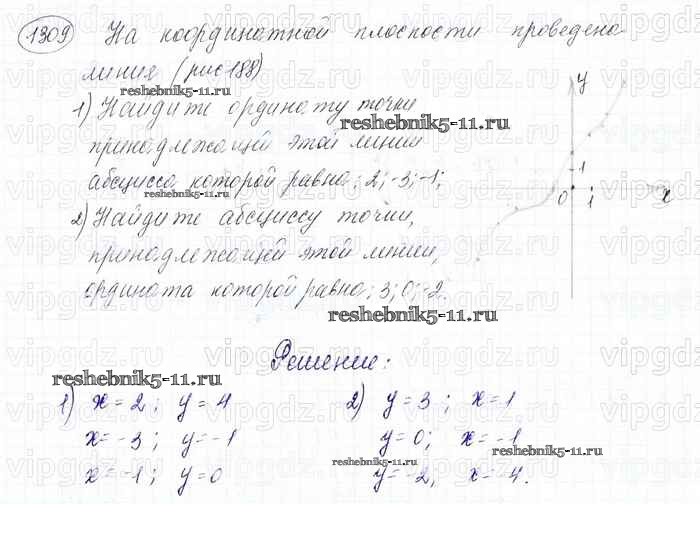 1309 На координатной плоскости проведена
линия (рис 188)
reshebnik5-11.ru
1) Найдите ординату точки
reshebnik5-11.ru
принадлежащей этой линии
абсцисса которой равна: 2; -3; -1;
reshebnik5-11.ru
2) Найдите абсциссу точки,
принадлежащей этой линии,
ордината которой равна: 3; 0; -2.
reshebnik5-11.ru
y
1
0
1
x
Решение:
reshebnik5-11.ru
1) x = 2; y = 4
2) y = 3; x = 1
x = -3; y = -1
y = 0; x = -1
reshebnik5-11.ru
x = -1; y = 0
reshebnik5-11.ru
y = -2, x = -4.
vipgdz.ru